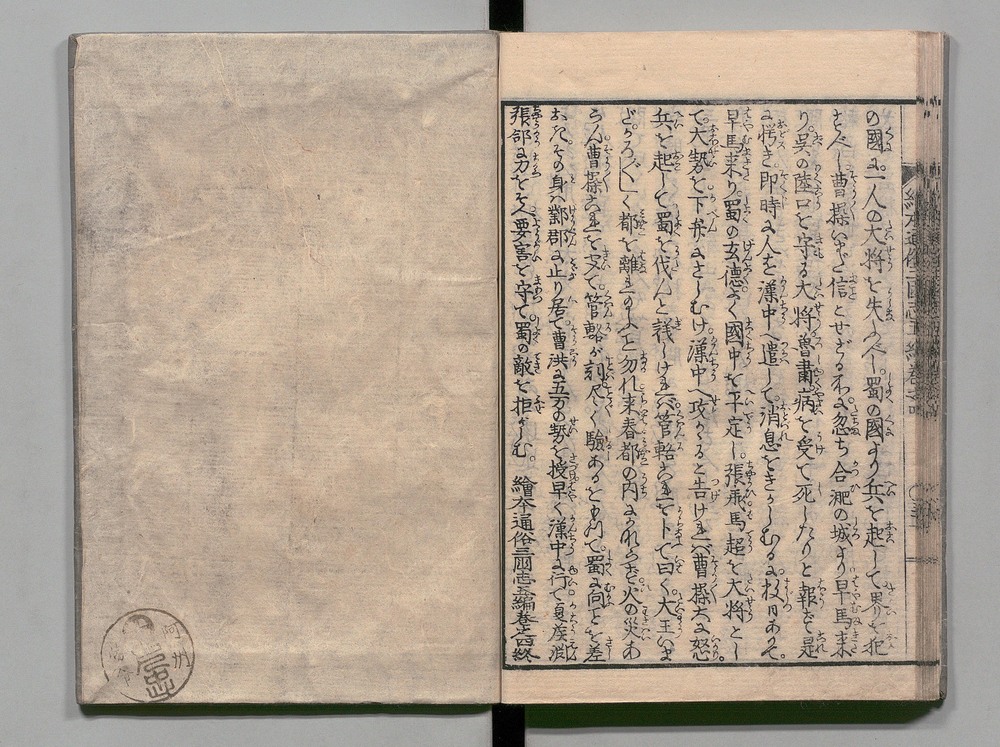 の國に。一人の大将を失ふべし。蜀の國より兵を起して界を犯
すべし曹操いまだ信とせざる所に忽ち合淝の城より早馬来
り。呉の陸口を守る大将魯粛病を受て死したりと報ず是
に愕き。即時に人を漢中へ遣して。消息をきかしむるに数日ありて。
早馬来り。蜀の玄徳よく國中を平定し。張飛馬超を大将とし
て。大勢を下弁にさしむけ。漢中へ攻かると告けれバ曹操大に怒
兵を起して蜀を伐んと議しけれバ管輅これを卜て曰く大王いま
だかろ〲しく都を離れ玉ふこと勿れ来春都の内にかならず火の災あ
らん曹操これを聞て。管輅が言尽く驗あるをもつて。蜀に向ことを差
おきその身ハ鄴郡に止り居て曹洪に五万の勢を授早く漢中に行て夏侯淵
張郃に力をそへ要害を守て蜀の敵を拒がしむ。　繪本通俗三國志五編巻之四終
繪本通俗三国志五編巻之四
阿州